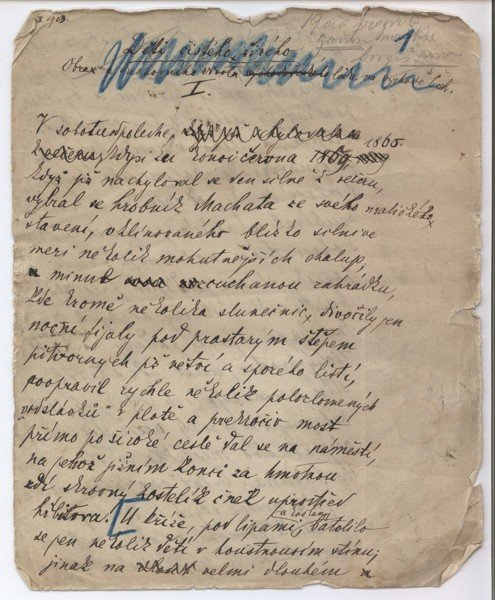 1903.
1
Z dob
Obraz
I
V sobotu
kdysi za konci června 1860.
když již nachyloval se den silně k večeru,
vybral se hrobník Machata ze svého maličkého
stavení, vklínovaného blízko silnice
mezi několik mohutnějších chalup,
a minul cuchanou zahrádku,
kde kromě několika slunečnic, divočily jen
noční fijaly pod prastarým štěpem
pitvorných již větví a sporého listí,
poopravil rychle několik polozlomených
„vodslávků“ v plotě a překročiv most
přímo po široké cestě dal se na náměstí,
na jehož jižním konci za hmotnou
zdí skrovný kostelík čněl uprostřed
hřbitova. [U kříže, pod lipami, batolilo
se jen několik dětí v houstnoucím stínu;
jinak na velmi dlouhém